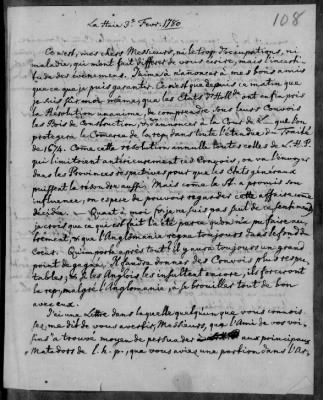 108
La Haie 3e. Fevr. 1780
Ce n'est, mes chers Messieurs, ni le trop d'occupations, ni
maladie, qui m'ont fait différer de vous écrire, mais l'incerti-
tude des évenemens. J'aime à n'annoncer à mes bons amis
que ce que je puis garantir. Ce n'est que depuis ce matin que
je suis sûr moi-même, que les Etats d'Hollde. ont enfin pris
la Résolution unanime, de comprendre sous leurs Convois
les Bois de Construction, répondre à la Cour de que l'on
protegera le Comerce de la rep. dans toute l'étendue du Traité
de 1674. Come cette résolution annulle toutes celles de L. H. P.
qui limitoient antérieurement ces Convois, on va l'envoyer
dans les Provinces respectives pour que les Etats généraux
puissent la résoudre aussi. Mais come le St. a promis son
influence, on espere de pouvoir regarder cette affaire come
décidée. — Quant à moi je ne suis pas de ce sentiment,
je crois que ce qui est fait l'a été parce qu'on n'a pu faire au-
trement, & que l'Anglomanie regne toujours dans le fond du
coeur. Qu'importe après tout! il y aura toujours un grand
point de gagné. Il faudra donner des Convois plus respec-
tables, & si les Anglois les insultent encore, ils forceront
la rep., malgré l'Anglomanie, à se brouiller tout de bon
avec eux.
J'ai une Lettre dans laquelle quelqu'un que vous connois-
sez, me dit de vous avertir, Messieurs, que l'Ami de vos voi-
sins a trouvé moyen de persuader aux principaux
Matadors de l. h. p., que vous aviez une portion dans l'Ar-